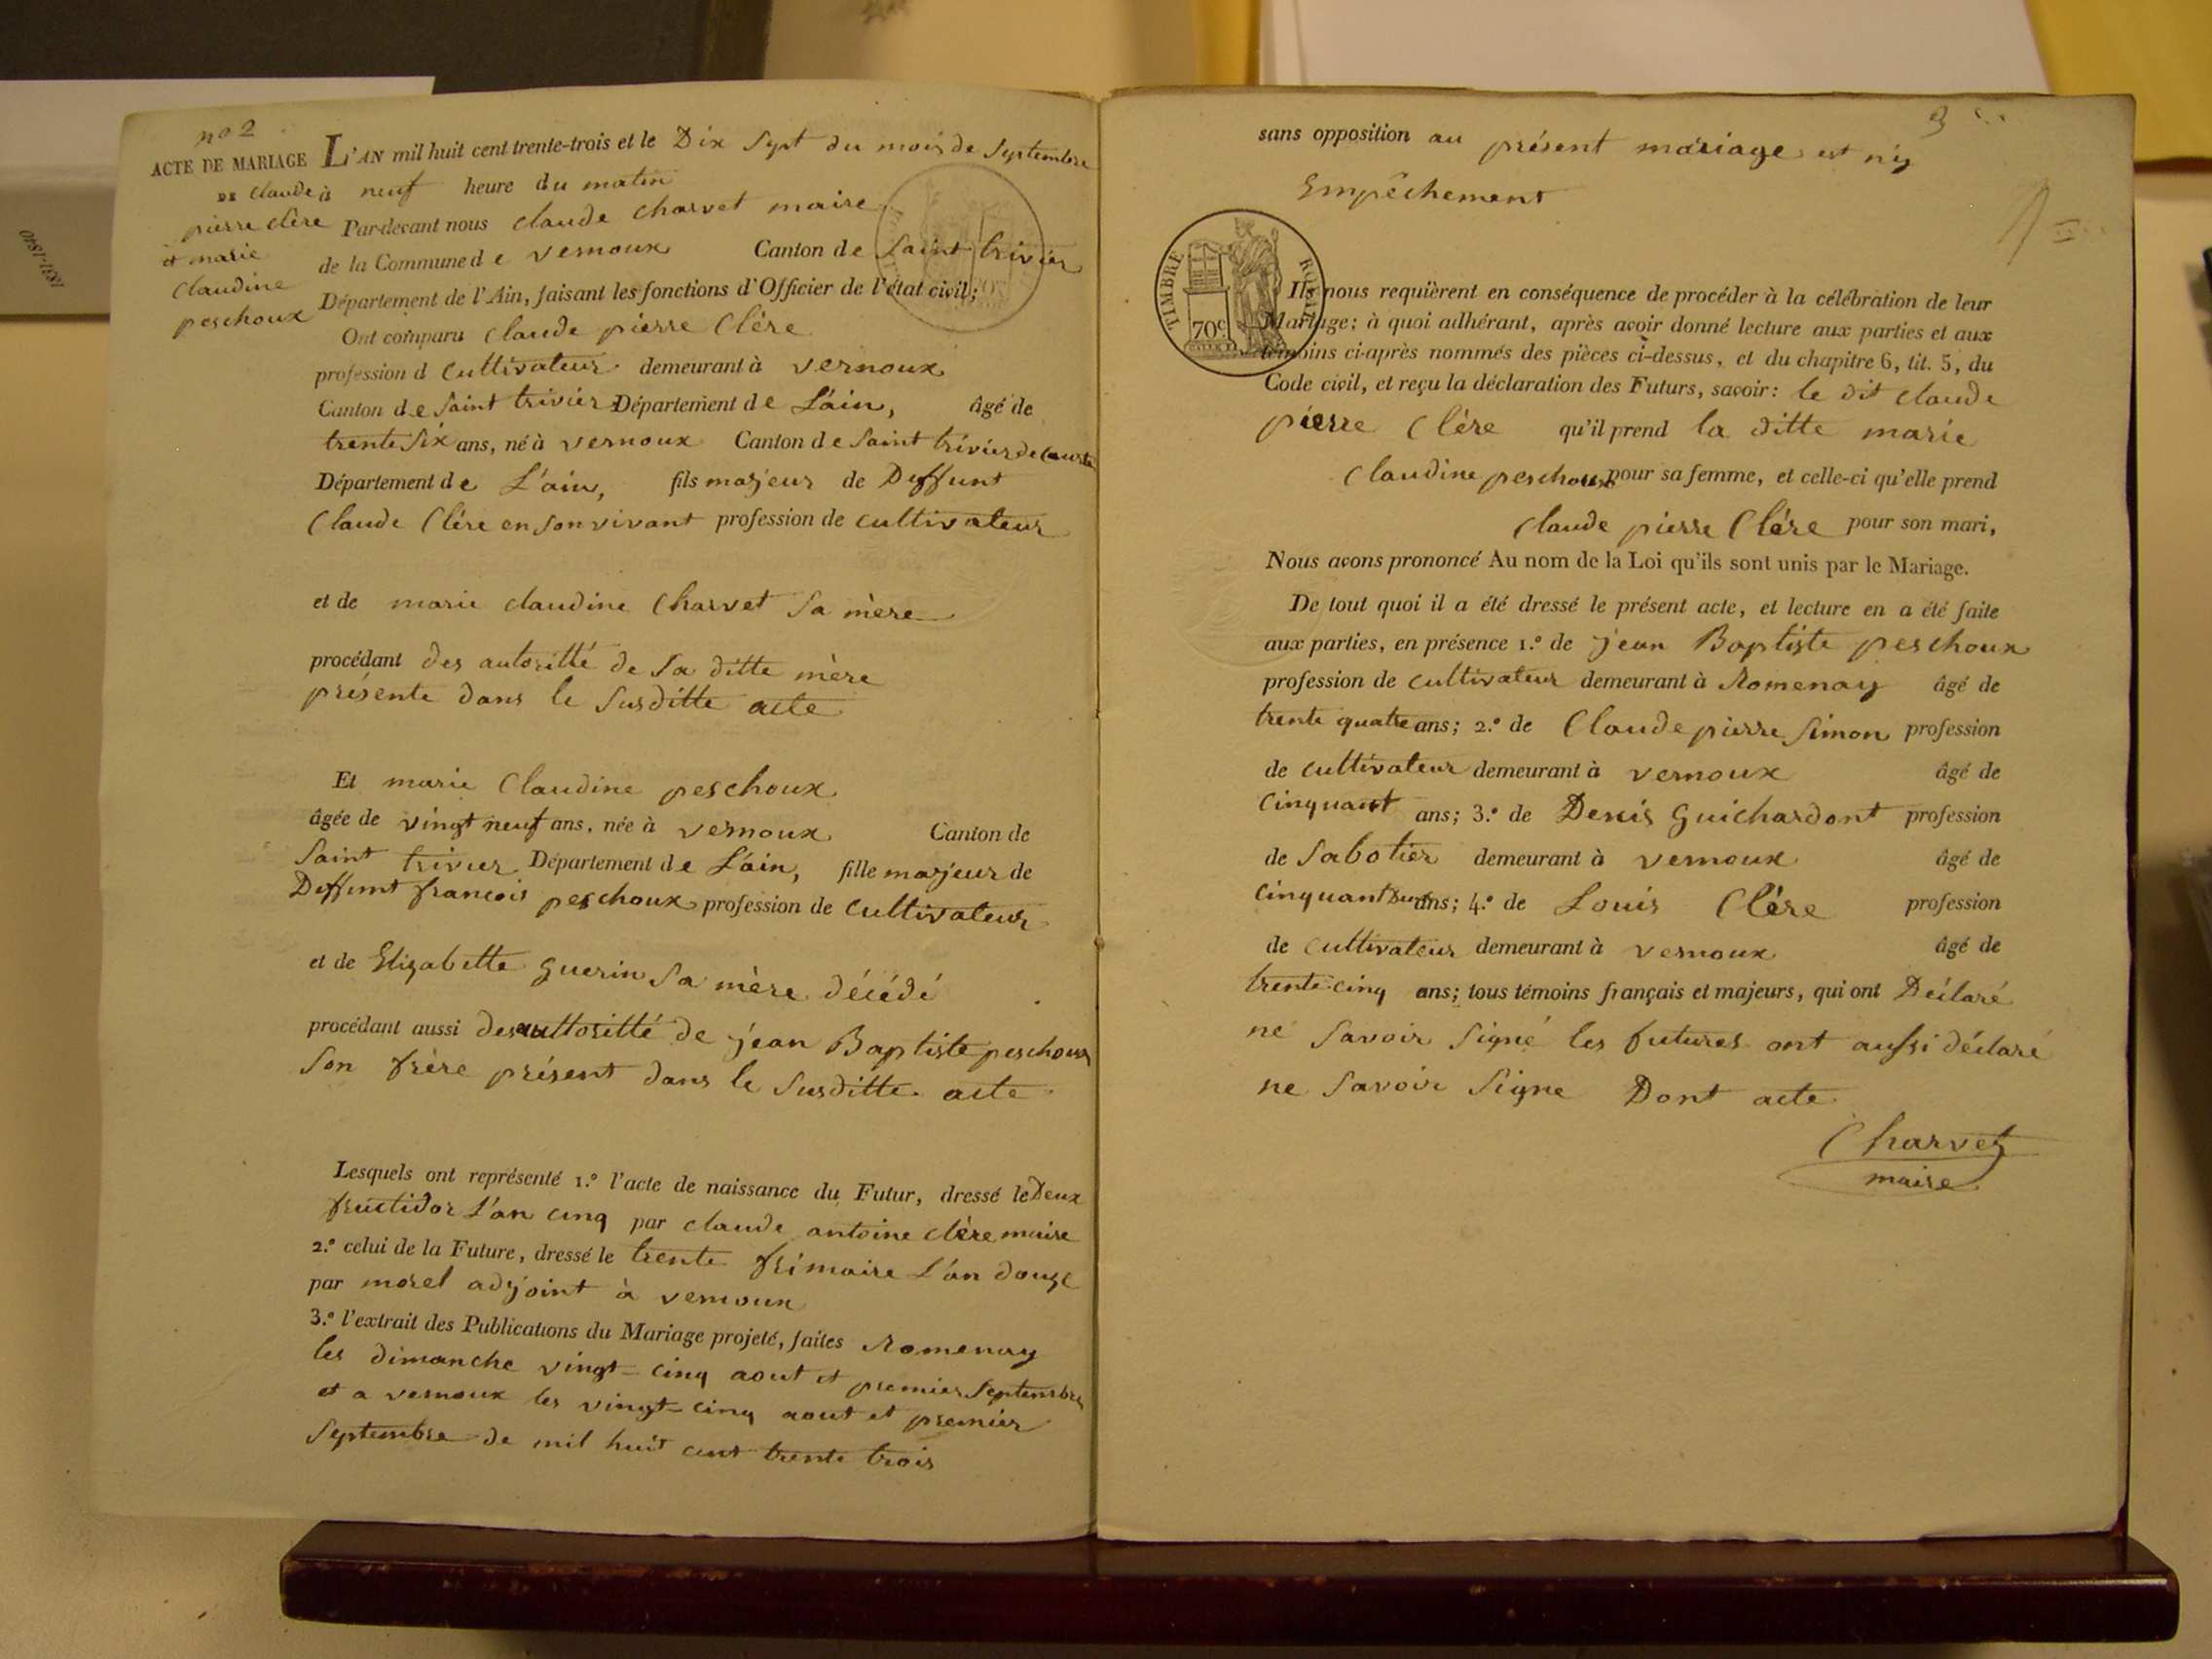 1831-1840
nº 2
ACTE DE MARIAGE
DE Claude
pierre clère
et marie
Claudine
peschoux
L'AN mil huit cent trente-trois et le Dix Sept du mois de Septembre
à neuf heure du matin
Par-devant nous Claude Charvet maire
de la Commune de vernoux Canton de Saint trivier
Département de l'Ain, faisant les fonctions d'Officier de l'état civil;
Ont comparu Claude pierre Clère
profession d Cultivateur demeurant à vernoux
Canton de Saint trivier Département de L'ain, âgé de
trente Six ans, né à vernoux Canton de Saint trivier de Courte
Département de L'ain, fils majeur de Deffunt
Claude Clère en Son vivant profession de cultivateur
et de marie claudine Charvet Sa mère
procédant des autoritté de Sa ditte mère
présente dans le Susditte acte
Et marie Claudine peschoux
âgée de vingt neuf ans, née à vernoux Canton de
Saint trivier Département de L'ain, fille majeur de
Deffunt francois peschoux profession de Cultivateur
et de Elizabette guerin Sa mère décédé
procédant aussi des auttoritté de jean Baptiste peschoux
Son frère présent dans le Susditte acte
Lesquels ont représenté 1.º l'acte de naissance du Futur, dressé le Deux
fructidor L'an cinq par claude antoine clère maire
2.º celui de la Future, dressé le trente frimaire L'an douze
par morel adjoint à vernoux
3.º l'extrait des Publications du Mariage projeté, faites Romenay
les dimanche vingt-cinq aout et premier Septembre
et a vernoux les vingt-cinq aout et premier
Septembre de mil huit cent trente trois
3
sans opposition au présent mariage est n'y
Empêchement
TIMBRE ROYAL
70c
Ils nous requièrent en conséquence de procéder à la célébration de leur
Mariage; à quoi adhérant, après avoir donné lecture aux parties et aux
témoins ci-après nommés des pièces ci-dessus, et du chapitre 6, tit. 5, du
Code civil, et reçu la déclaration des Futurs, savoir: le dit claude
pierre Clère qu'il prend la ditte marie
Claudine peschoux pour sa femme, et celle-ci qu'elle prend
Claude pierre Clère pour son mari,
Nous avons prononcé Au nom de la Loi qu'ils sont unis par le Mariage.
De tout quoi il a été dressé le présent acte, et lecture en a été faite
aux parties, en présence 1.º de jean Baptiste peschoux
profession de cultivateur demeurant à Romenay âgé de
trente quatre ans; 2.º de Claude pierre Simon profession
de cultivateur demeurant à vernoux âgé de
Cinquant ans; 3.º de Denis Guichardont profession
de Sabotier demeurant à vernoux âgé de
cinquant ans; 4.º de Louis Clère profession
de cultivateur demeurant à vernoux âgé de
trente cinq ans; tous témoins français et majeurs, qui ont Déclaré
ne Savoir Signé les futures ont aussi déclaré
ne Savoir Signe Dont acte
Charvet
maire